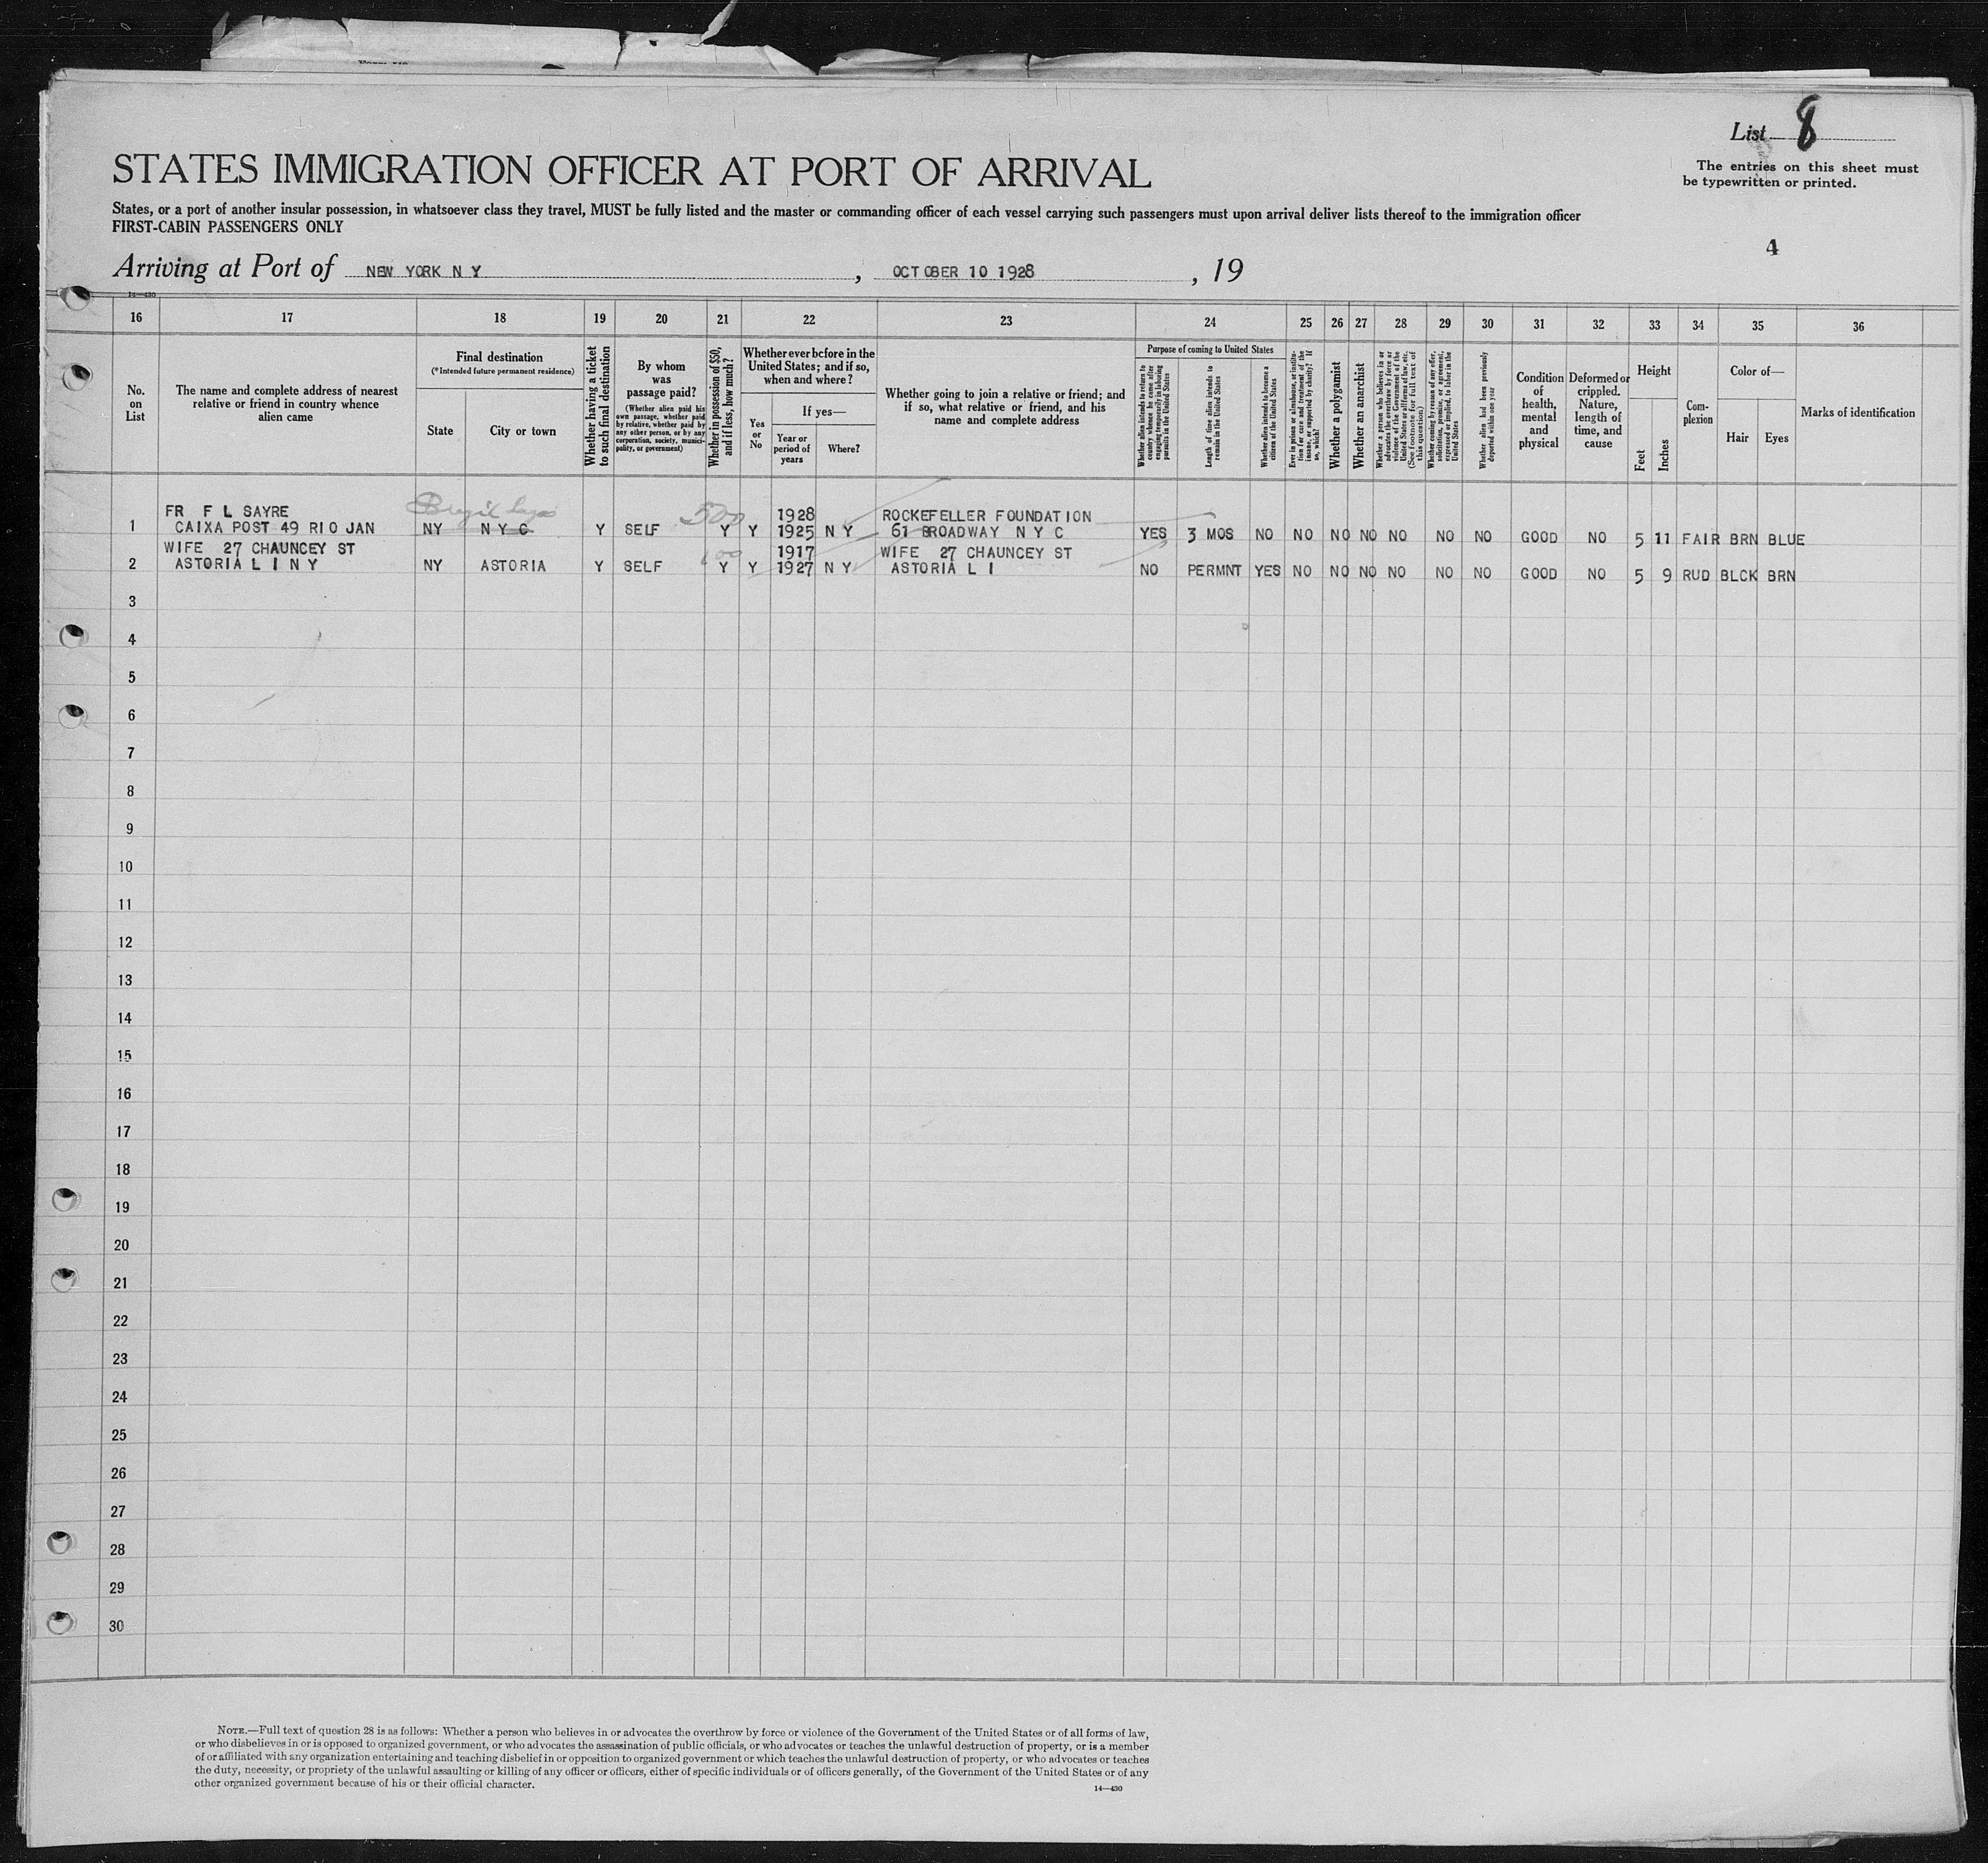 List 8
The entries on this sheet must
be typewritten or printed.
STATES IMMIGRATION OFFICER AT PORT OF ARRIVAL
States, or a port of another insular possession, in whatsoever class they travel, MUST be fully listed and the master or commanding officer of each vessel carrying such passengers must upon arrival deliver lists thereof to the immigration officer
FIRST-CABIN PASSENGERS ONLY
4
Arriving at Port of NEW YORK N Y, OCTOBER 10 1928, 19
14—430
16 17 18 19 20 21 22 23 24 25 26 27 28 29 30 31 32 33 34 35 36
No. on List
The name and complete address of nearest relative or friend in country whence alien came
Final destination
(*Intended future permanent residence)
State
City or town
Whether having a ticket to such final destination
By whom was passage paid?
(Whether alien paid his own passage, whether paid by relative, whether paid by any other person, or by any corporation, society, municipality, or government)
Whether in possession of $50, and if less, how much?
Whether ever before in the United States; and if so, when and where?
Yes or No
If yes—
Year or period of years
Where?
Whether going to join a relative or friend; and if so, what relative or friend, and his name and complete address
Purpose of coming to United States
Whether alien intends to return to country whence he came after engaging temporarily in laboring pursuits in the United States
Length of time alien intends to remain in the United States
Whether alien intends to become a citizen of the United States
Ever in prison or almshouse, or institution for care and treatment of the insane, or supported by charity? If so, which?
Whether a polygamist
Whether an anarchist
Whether a person who believes in or advocates the overthrow by force or violence of the Government of the United States or all forms of law, etc. (See footnote for full text of this question)
Whether coming by reason of any offer, solicitation, promise, or agreement, expressed or implied, to labor in the United States
Whether alien had been previously deported within one year
Condition of health, mental and physical
Deformed or crippled. Nature, length of time, and cause
Height
Feet
Inches
Complexion
Color of—
Hair
Eyes
Marks of identification
FR F L SAYRE Brazil 500 1928 ROCKEFELLER FOUNDATION
1 CAIXA POST 49 RIO JAN NY N Y C Y SELF Y Y 1925 N Y 61 BROADWAY N Y C YES 3 MOS NO NO NO NO NO NO NO GOOD NO 5 11 FAIR BRN BLUE
WIFE 27 CHAUNCEY ST 100 1917 WIFE 27 CHAUNCEY ST
2 ASTORIA L I N Y NY ASTORIA Y SELF Y Y 1927 N Y ASTORIA L I NO PERMNT YES NO NO NO NO NO NO GOOD NO 5 9 RUD BLCK BRN
3
4
5
6
7
8
9
10
11
12
13
14
15
16
17
18
19
20
21
22
23
24
25
26
27
28
29
30
NOTE.—Full text of question 28 is as follows: Whether a person who believes in or advocates the overthrow by force or violence of the Government of the United States or of all forms of law,
or who disbelieves in or is opposed to organized government, or who advocates the assassination of public officials, or who advocates or teaches the unlawful destruction of property, or is a member
of or affiliated with any organization entertaining and teaching disbelief in or opposition to organized government or which teaches the unlawful destruction of property, or who advocates or teaches
the duty, necessity, or propriety of the unlawful assaulting or killing of any officer or officers, either of specific individuals or of officers generally, of the Government of the United States or of any
other organized government because of his or their official character.
14—430